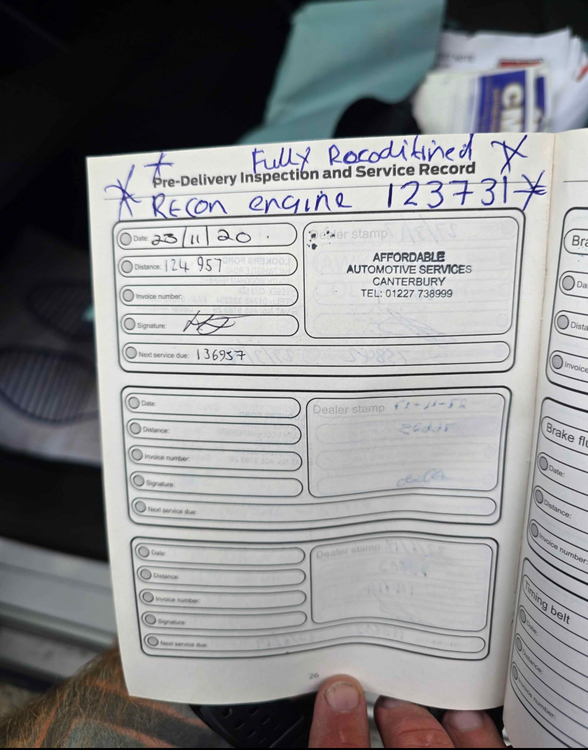 Fully Rocoditined
Pre-Delivery Inspection and Service Record
RECON engine 123731
Date: 23/11/20
Distance: 124 957
Invoice number:
Signature:
Next service due: 136957
Dealer stamp
AFFORDABLE
AUTOMOTIVE SERVICES
CANTERBURY
TEL: 01227 738999
Date:
Distance:
Invoice number:
Signature:
Next service due:
Dealer stamp
Date:
Distance:
Invoice number:
Signature:
Next service due:
Dealer stamp
26
Bra
Da
Dista
Invoice
Brake flu
Date:
Distance:
Invoice number:
Timing belt
Date:
Distance:
Invoice number: